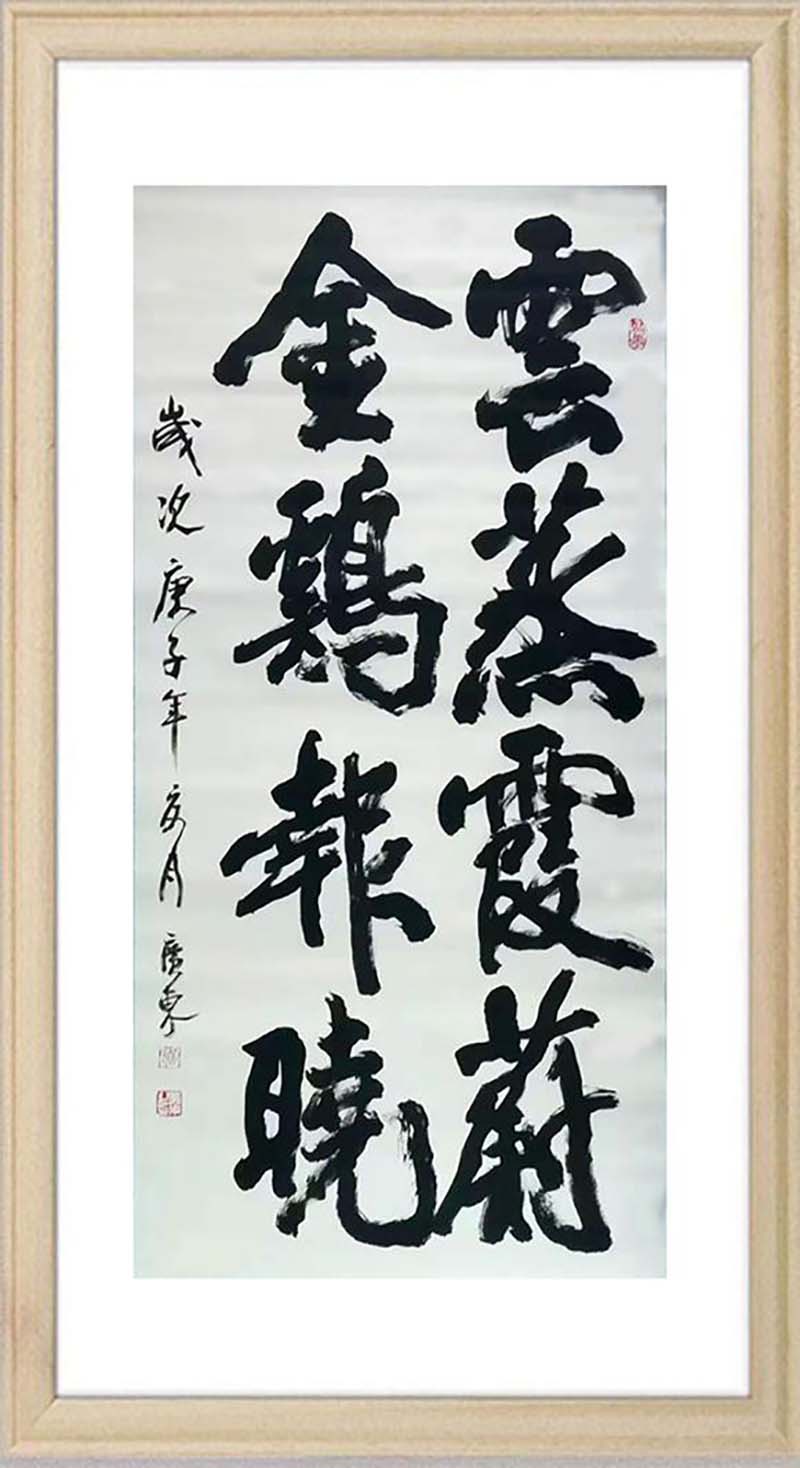 雲蒸霞蔚
金鷄報曉
歲次庚子年亥月廣東